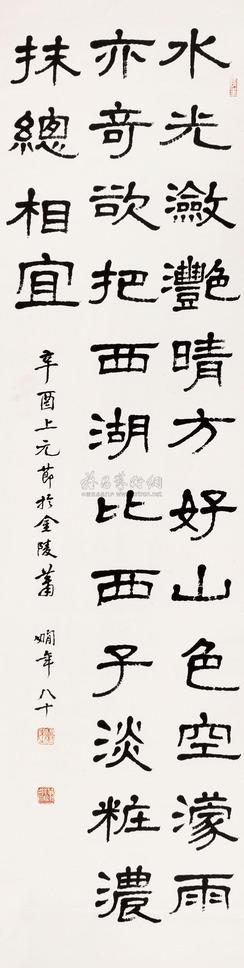 水光瀲灩晴方好山色空濛雨
亦奇欲把西湖比西子淡粧濃
抹總相宜
辛酉上元節於金陵蕭
嫻年八十